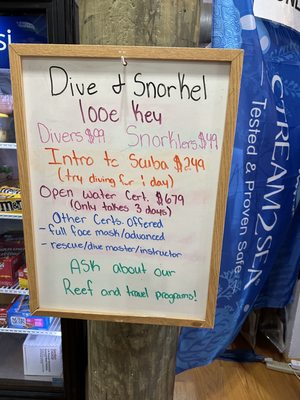 Dive & Snorkel
looe Key
Divers $99 Snorklers $49
Intro to Scuba $249
(try diving for 1 day)
Open Water Cert. $679
(Only takes 3 days)
Other Certs. Offered
- full face mask/advanced
- rescue/dive master/instructor
Ask about our
Reef and travel programs!
STREAM2SEA
Tested & Proven Safe